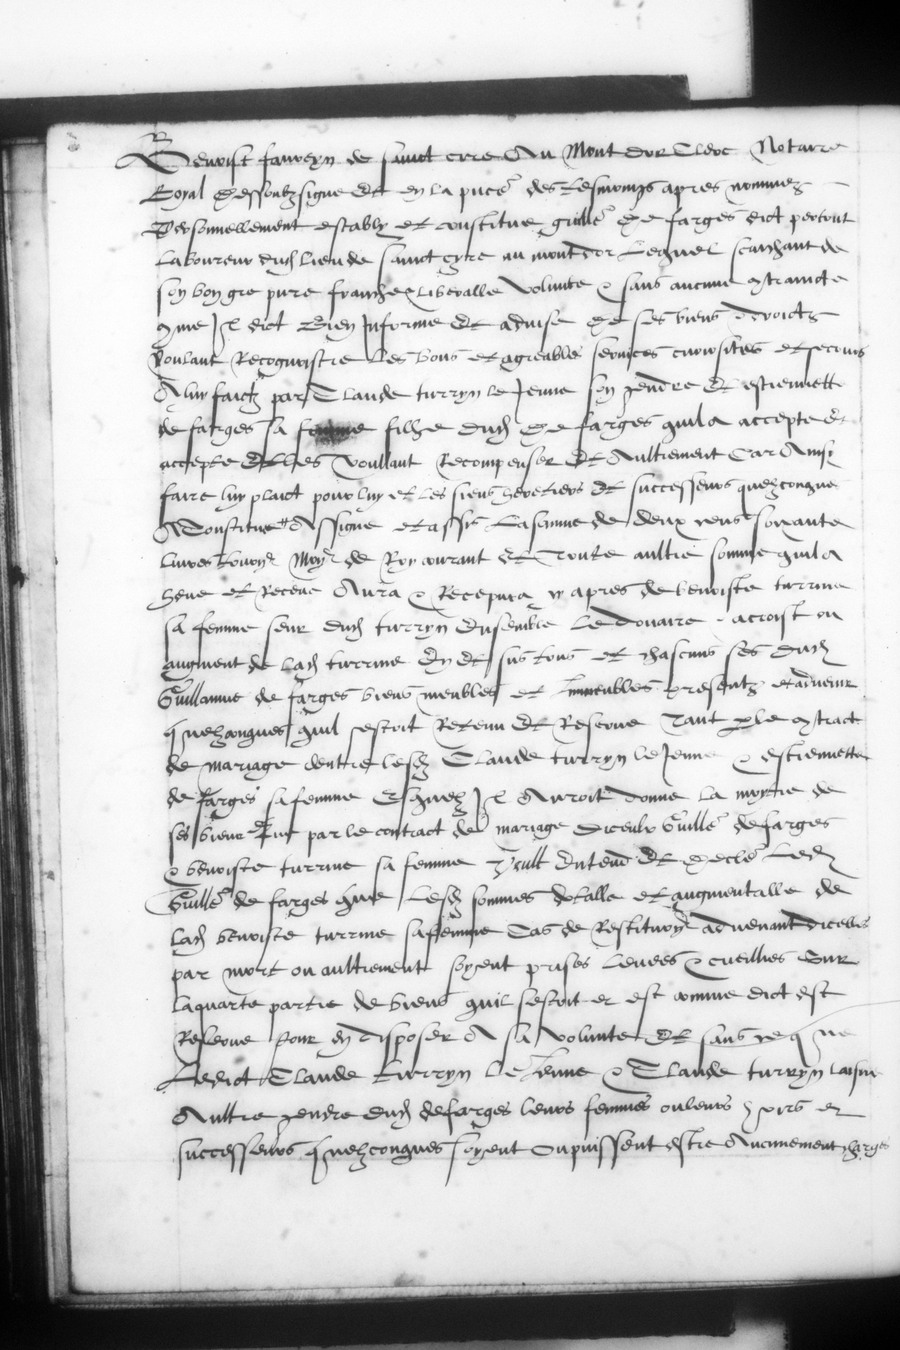 Benoist faureyn de sainct cire Au Mont dor Clerc Notaire
Royal dessoubzsigne Et en la pnce des tesmoings apres nommez
Personnellement estably et constitue guille de farges dict
Laboureur dud lieu de sainct cyre au mont dor Lequel scaichant de
son bon gre pure franche & Liberalle volunte & sans aucune contraincte
comme Il dict Bien Informe Et advise de ses biens & droictz
voulant Recognoistre les bons et agreables services curiosites et secours
A luy faictz par Claude turryn le Jeune son gendre Et estiennette
de farges sa filhe dud de farges quil a accepte et
accepte Et les voullant Recompenser Et Aultrement Car Ainsi
faire luy plaict pour luy et les siens heretiers Et successeurs quelzconque
A Constitue Assigne et assis La somme de deux cens soixante
livres tourn de Roy courant Et Toute aultre somme quil a
heue et Receue Aura & Recepvra cy apres de benoiste turrine
sa femme seur dud turryn Ensemble Le douaire acroist ou
augment de lad turrine En Et sus tous et chascuns ses dud
Guillaume de farges biens meubles et Immeubles presentz et advenir
quelzconques quil sestoit Retenu Et Reserve Tant p le contract
de mariage dentre lesd Claude turryn le Jeune & estiennette
de farges sa femme Esquelz Il Auroit donne la moytie de
ses biens Que par le contract de mariage diceulx Guille de farges
& benoiste turrine sa femme Et Led
Guille de farges que Lesd sommes dotalle et augmentalle de
Lad benoiste turrine sa femme Cas de Restitution advenant dicelles
par mort ou aultrement soyent prises Levees & cueillies Sur
la quarte partie de biens quil sestoit et est comme dict est
Reserve pour en disposer A sa volunte Et sans que
Ledict Claude turryn Le Jeune & Claude turryn laisne
Aultre gendre dud de farges leurs femmes ou leurs hoirs et
successeurs quelzconques soyent ou puissent estre Aucunement charges